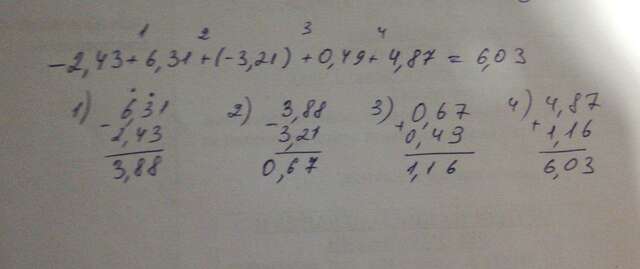 1 2 3 4
-2,43+6,31+(-3,21)+0,49+4,87=6,03
1) 2) 3) 4)
6,31 3,88 0,67 4,87
- - + +
2,43 3,21 0,49 1,16
3,88 0,67 1,16 6,03